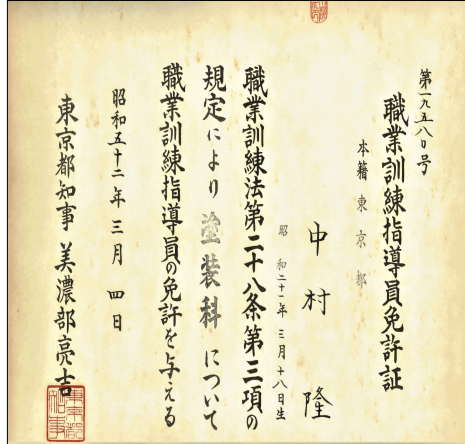 第一九五八〇号
職業訓練指導員免許証
本籍 東京都
中村 隆
昭和二十一年三月十八日生
職業訓練法第二十八条第三項の
規定により塗装科について
職業訓練指導員の免許を与える
昭和五十二年三月四日
東京都知事 美濃部亮吉
東京都知事